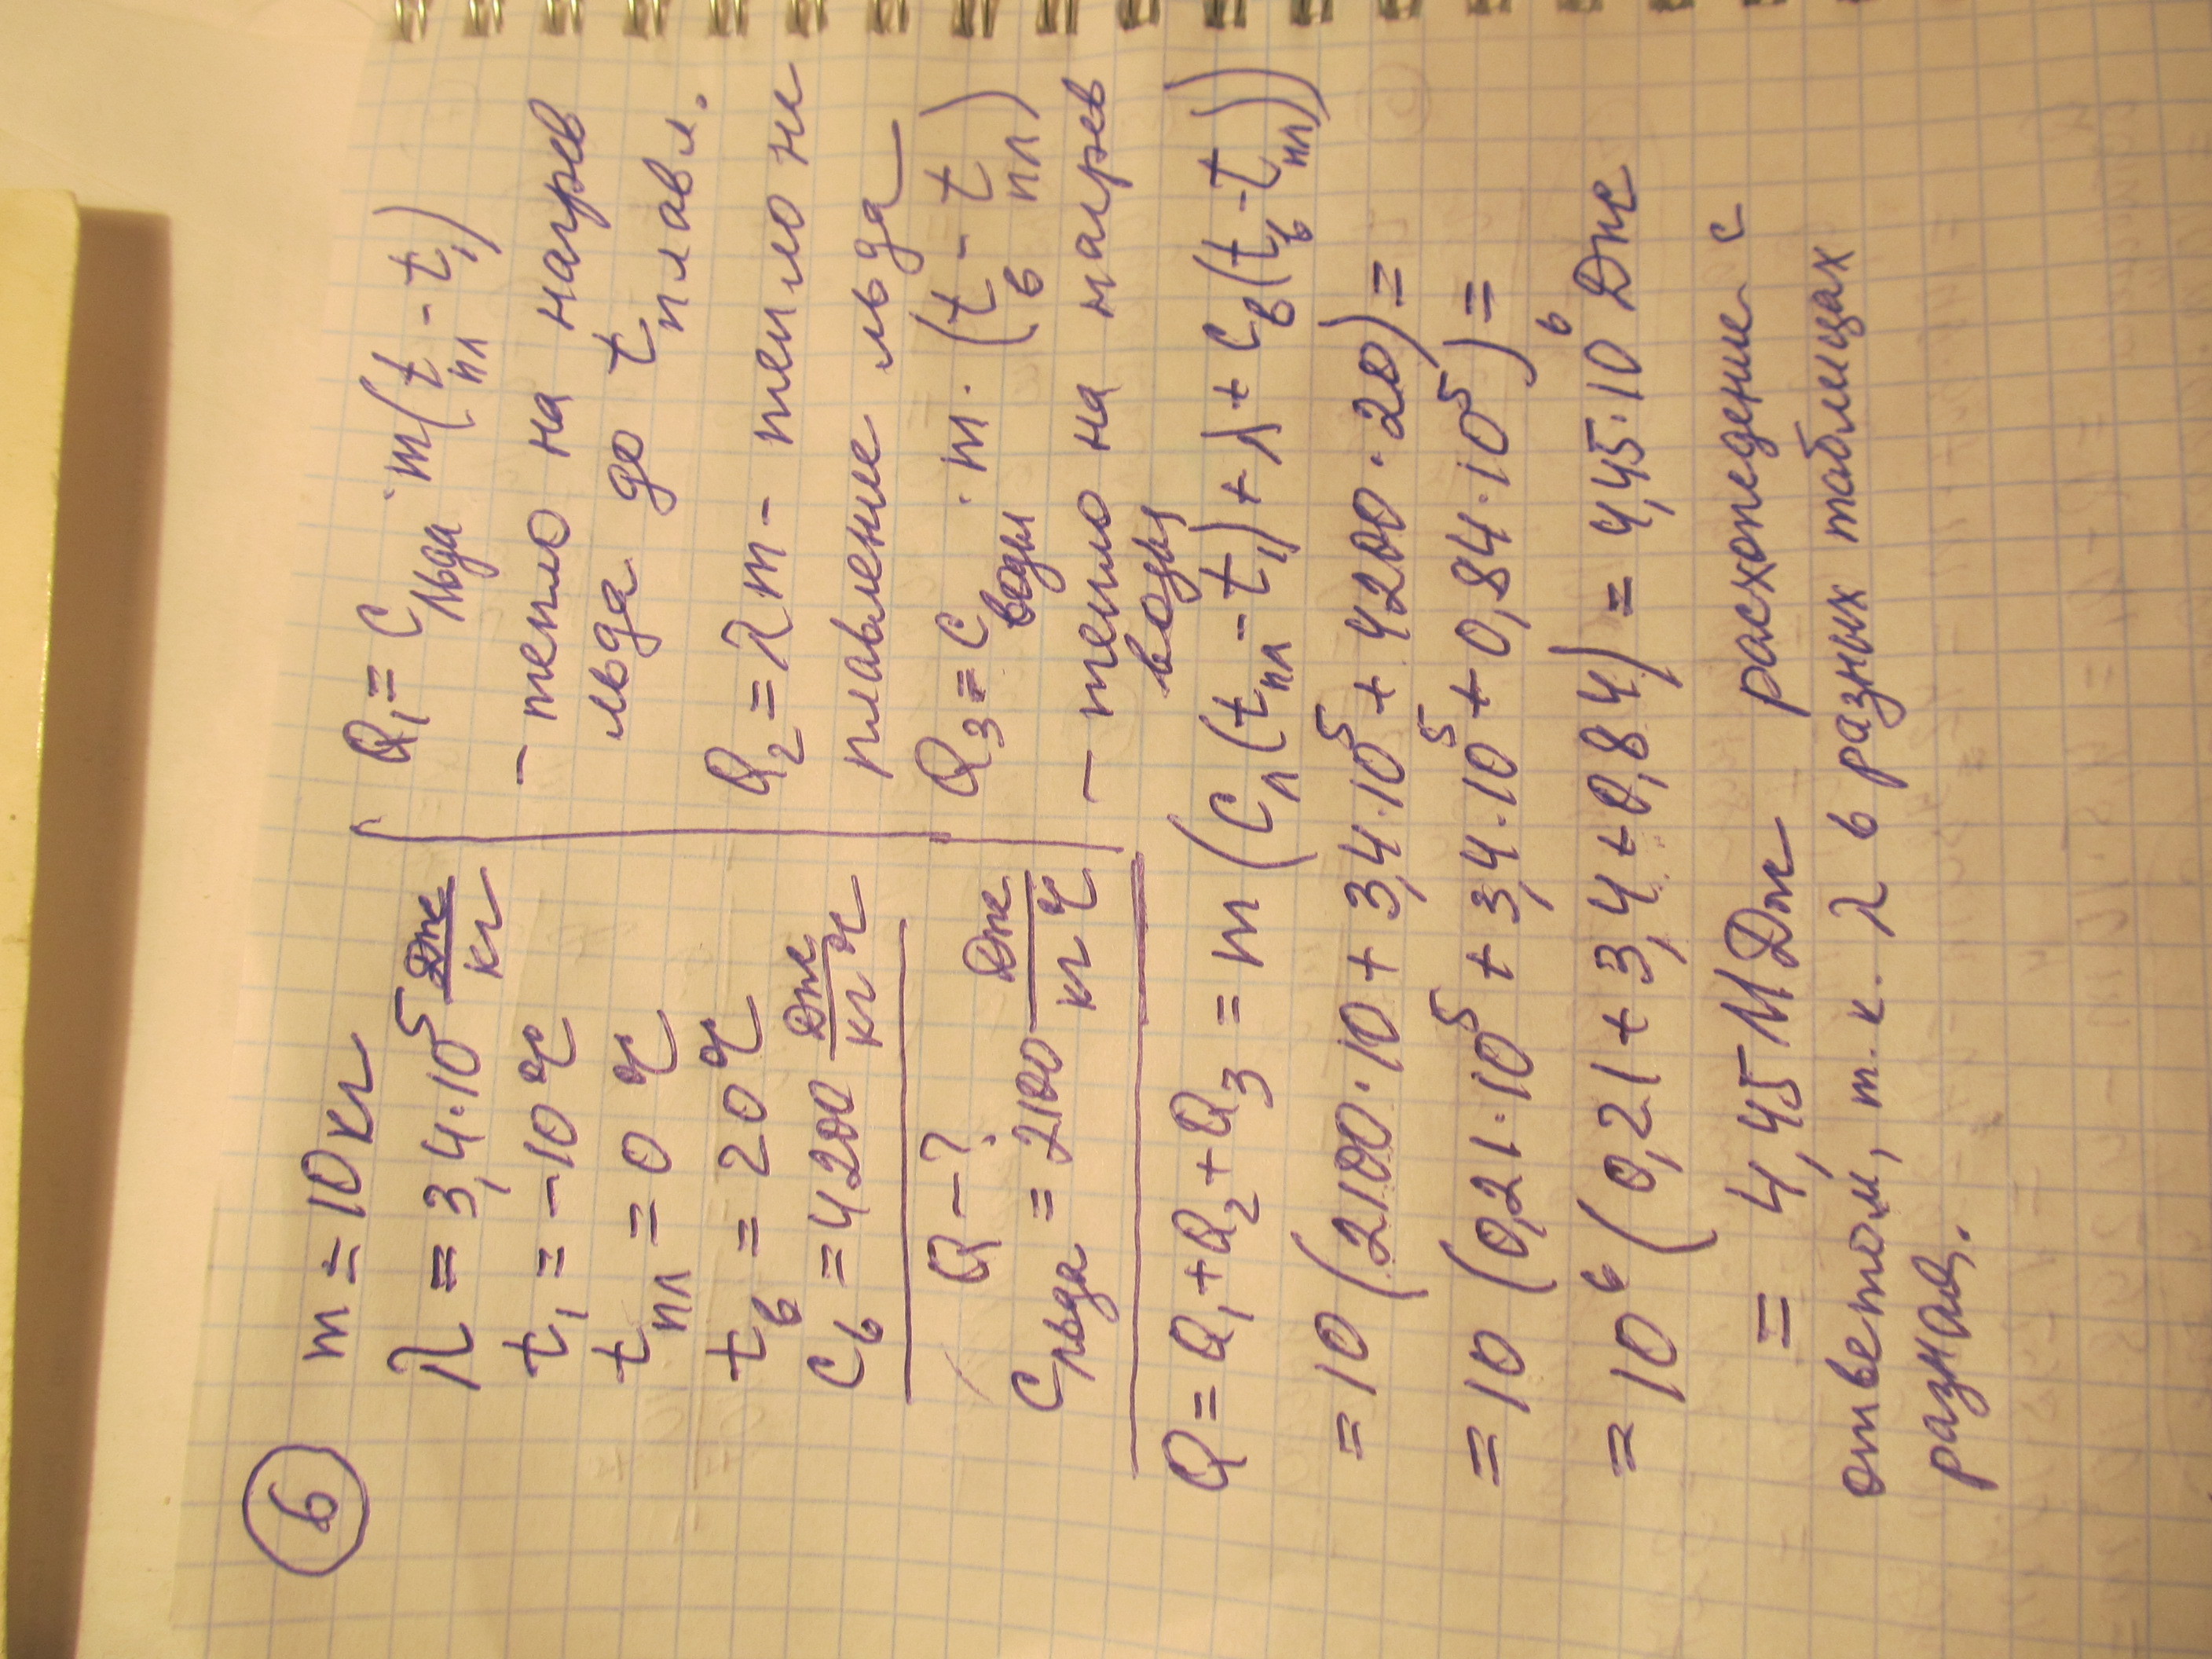 6
m = 10 кг
λ = 3,4·10⁵ Дж/кг
t₁ = -10 °C
tпл = 0 °C
tв = 20 °C
cв = 4200 Дж/кг °C
Q - ?
cльда = 2100 Дж/кг °C
Q₁ = cльда · m(tпл - t₁)
- тепло на нагрев
льда до tплавл.
Q₂ = λm - тепло на
плавление льда
Q₃ = cводы · m · (tв - tпл)
- тепло на нагрев
воды
Q = Q₁ + Q₂ + Q₃ = m (cл(tпл - t₁) + λ + cв(tв - tпл)) =
= 10 (2100·10 + 3,4·10⁵ + 4200·20) =
= 10 (0,21·10⁵ + 3,4·10⁵ + 0,84·10⁵) =
= 10⁶ (0,21 + 3,4 + 0,84) = 4,45·10⁶ Дж
= 4,45 МДж расхождение с
ответом, т.к. λ в разных таблицах
разная.